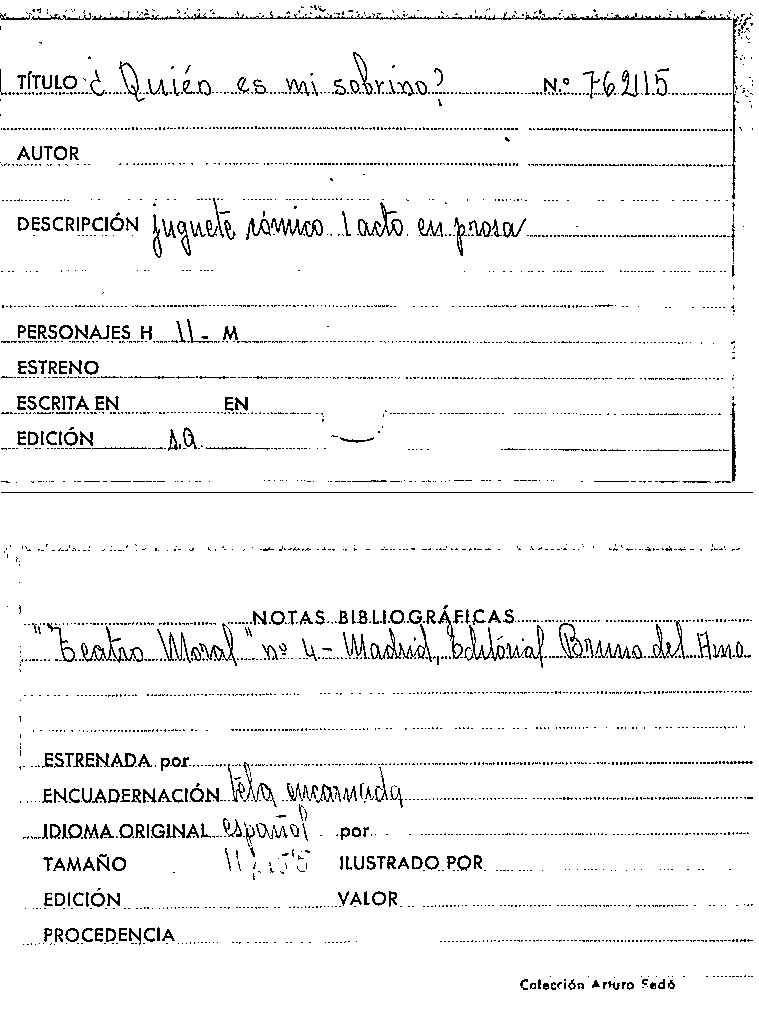 TÍTULO ¿Quién es mi sobrino? N.º 76215
AUTOR
DESCRIPCIÓN juguete cómico 1 acto en prosa
PERSONAJES H 11 - M
ESTRENO
ESCRITA EN EN
EDICIÓN s.a.
NOTAS BIBLIOGRÁFICAS
"Teatro Moral" nº 4 - Madrid, Editorial Bruno del Amo
ESTRENADA por
ENCUADERNACIÓN tela encarnada
IDIOMA ORIGINAL español por
TAMAÑO ILUSTRADO POR
EDICIÓN VALOR
PROCEDENCIA
Colección Arturo Sedó